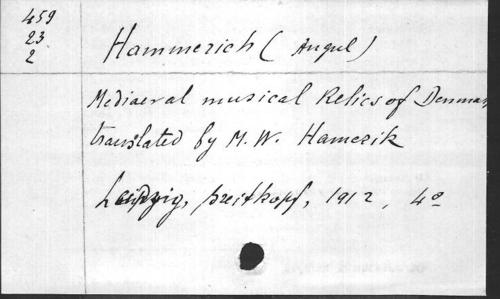 459
23
2
Hammerich (Angul)
Mediaeval musical Relics of Denmark
translated by M. W. Hamerik
Leipzig, breitkopf, 1912, 4º